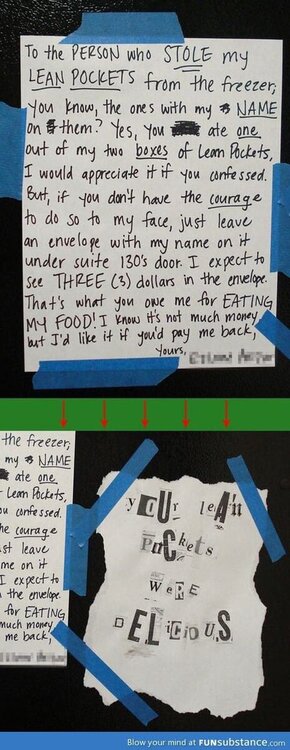 To the PERSON who STOLE my
LEAN POCKETS from the freezer,
you know, the ones with my NAME
on them? Yes, you ate one
out of my two boxes of Lean Pockets,
I would appreciate it if you confessed.
But, if you don't have the courage
to do so to my face, just leave
an envelope with my name on it
under suite 130's door. I expect to
see THREE (3) dollars in the envelope.
That's what you owe me for EATING
MY FOOD! I know it's not much money,
but I'd like it if you'd pay me back,
yours,
the freezer,
my NAME
ate one
Lean Pockets,
ou confessed.
he courage
st leave
me on it
I expect to
the envelope.
for EATING
much money
me back,
yOUr leAn
PoCkets
WeRE
DELiciOUS.
Blow your mind at FUNsubstance.com